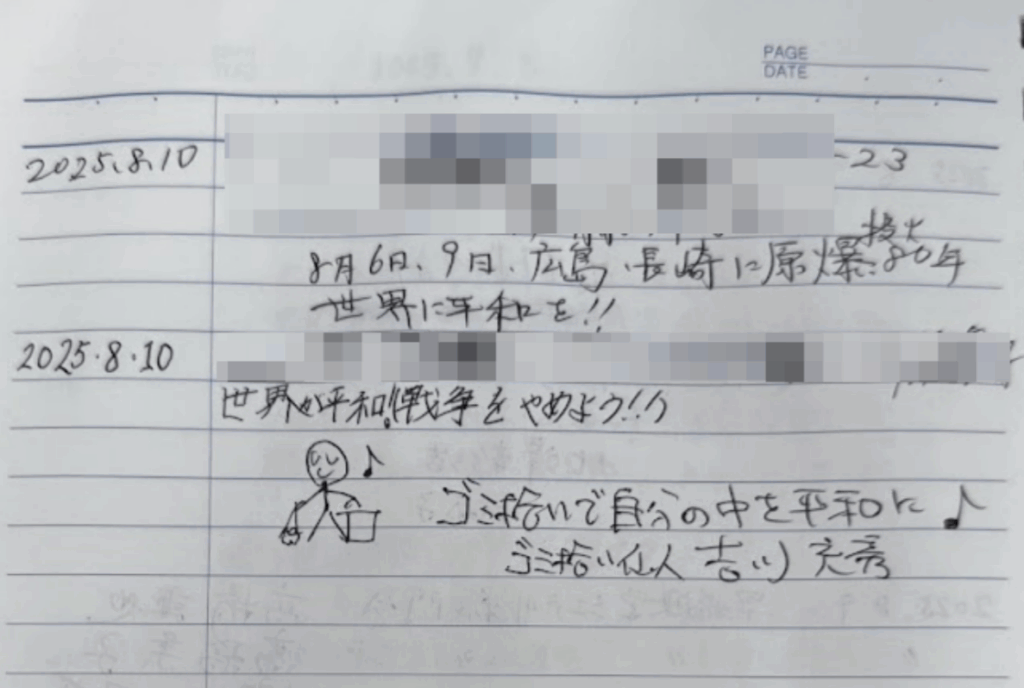 PAGE
DATE
2025.8.10
-23
投下
8月6日、9日、広島、長崎に原爆 80年
世界に平和を!!
2025・8・10
世界が平和!戦争をやめよう!!
ゴミ拾いで自分の中を平和に♪
ゴミ拾い仙人 吉川